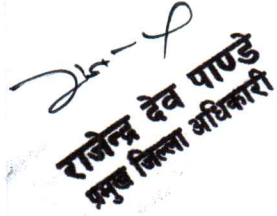 राजेन्द्र देव पाण्डे
प्रमुख जिल्ला अधिकारी